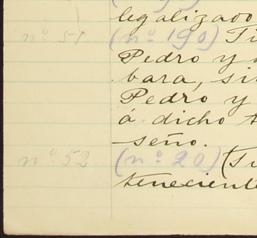 legalizado
nº 51 (nº 190) Ti
Pedro y
bara, si
Pedro y
á dicho t
seño.
nº 52 (nº 20) (Tu
teneciente